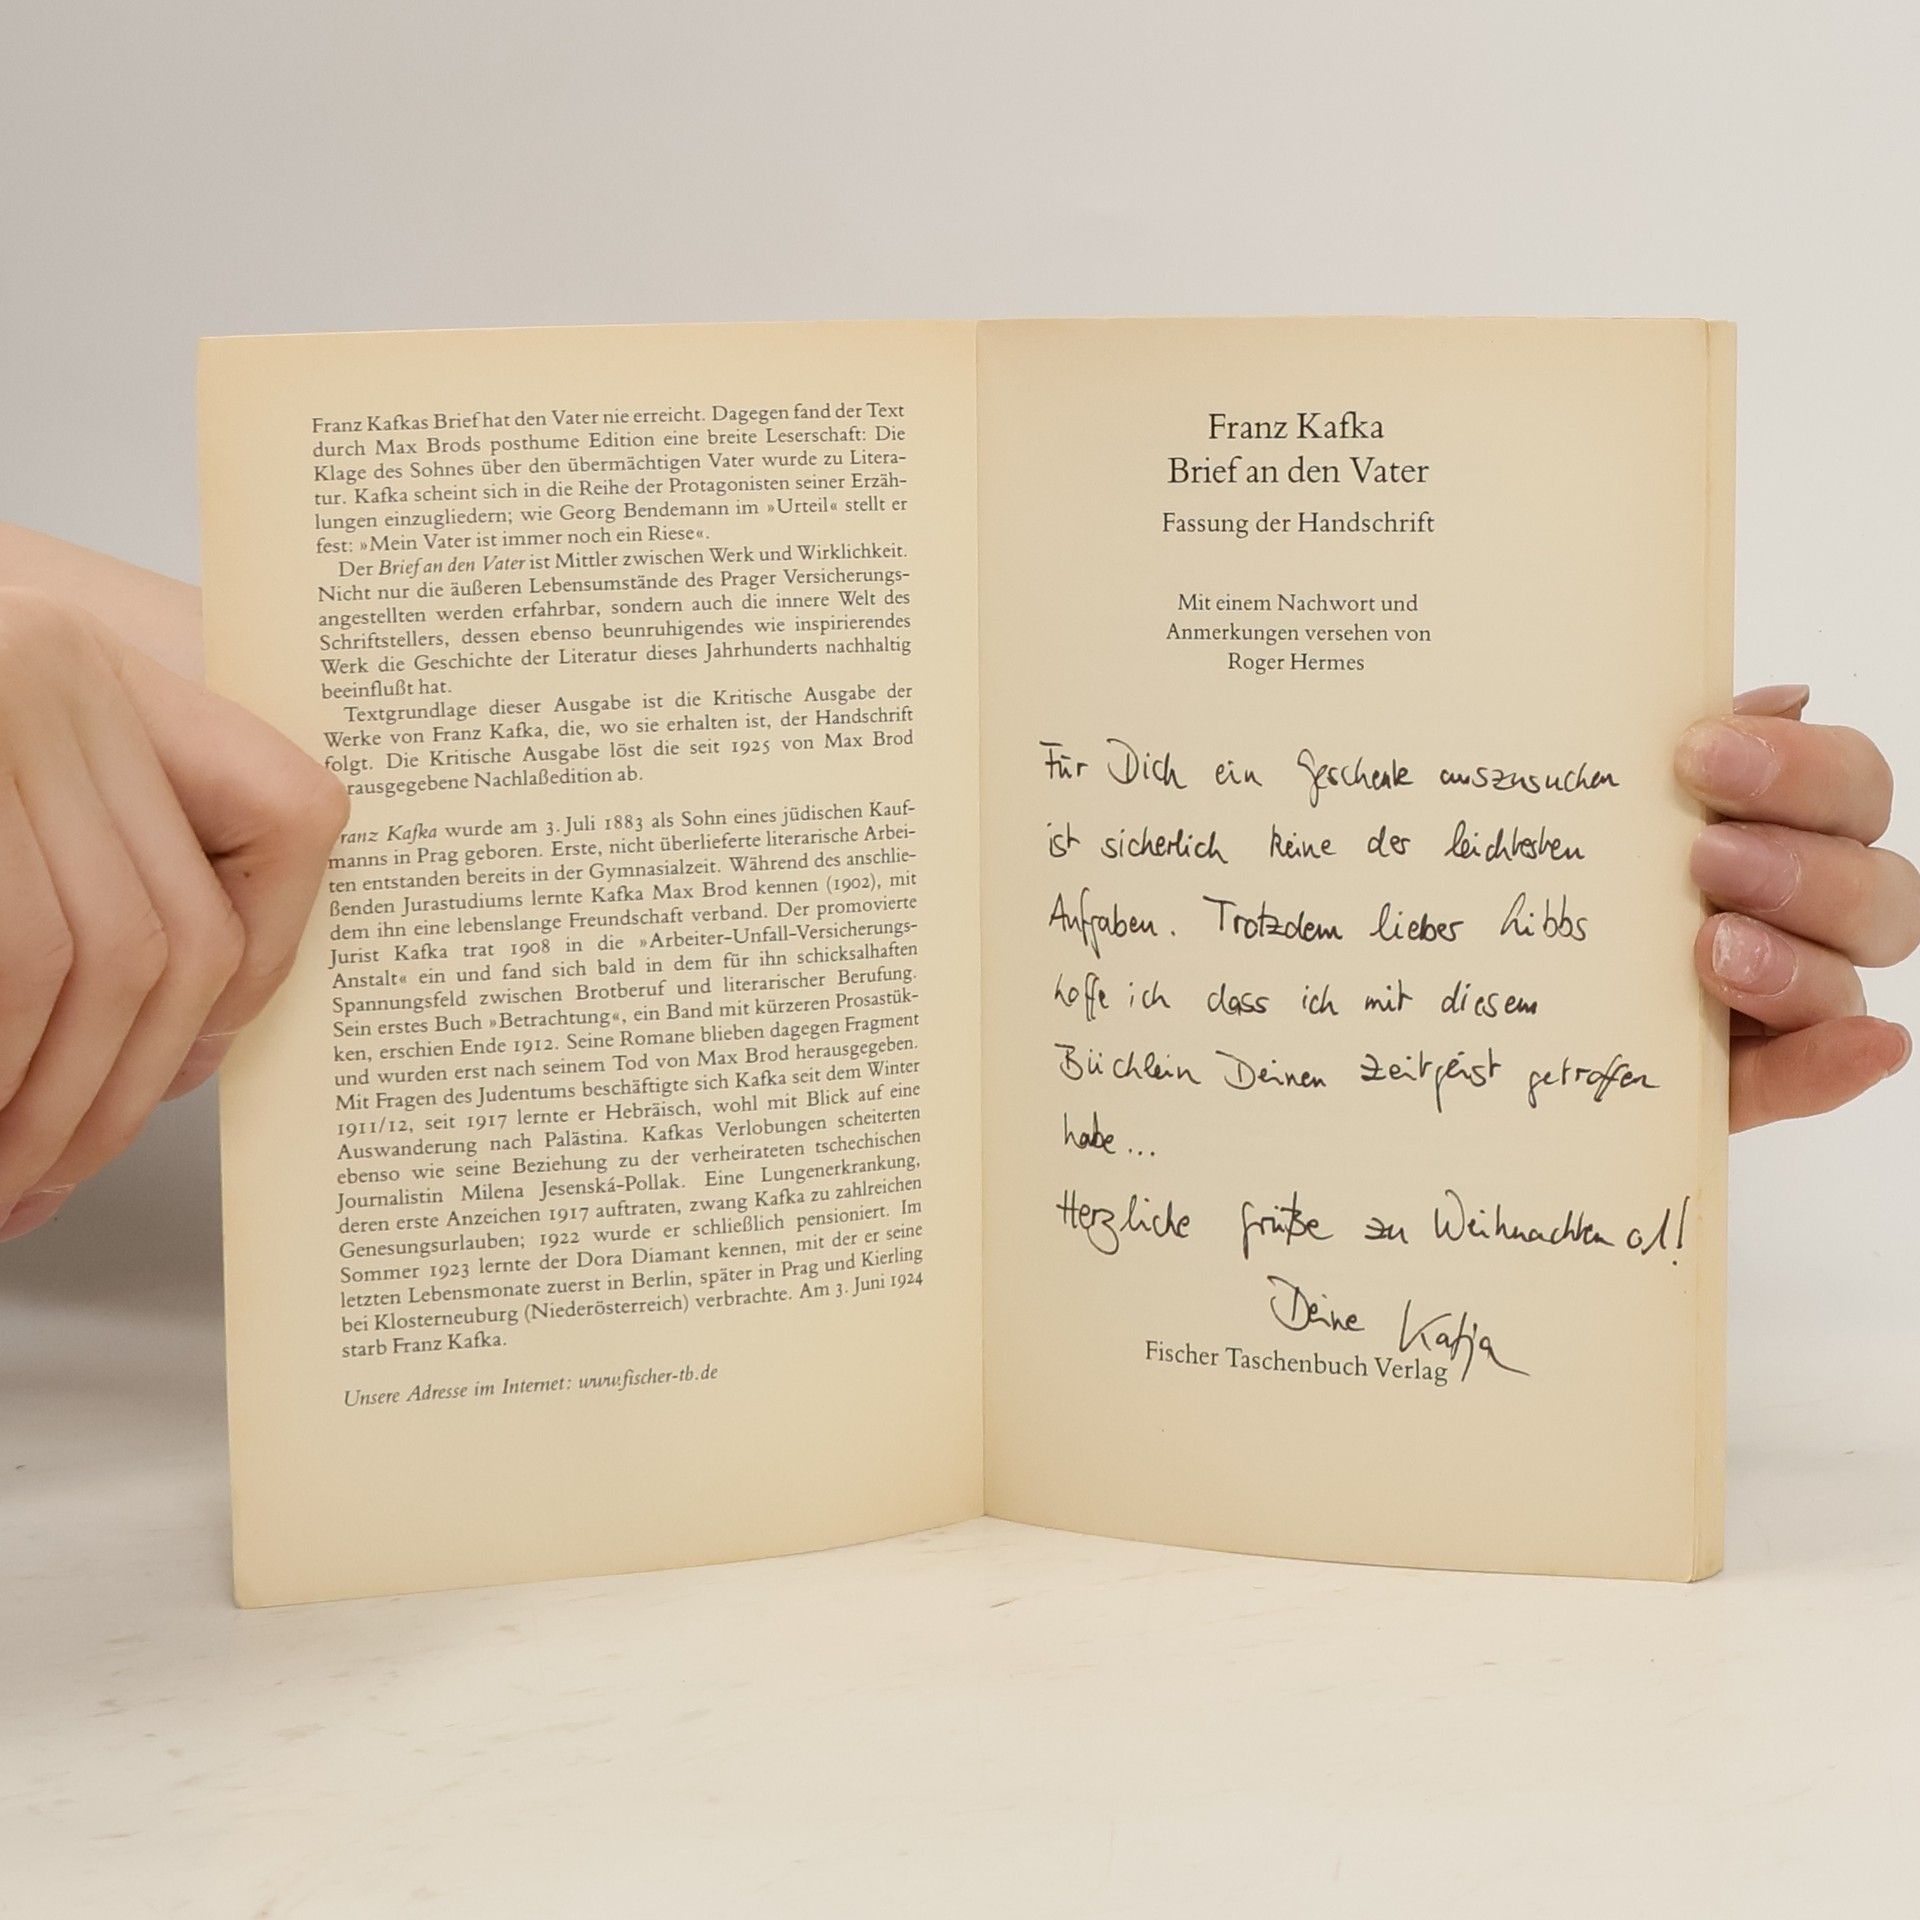 Franz Kafkas Brief hat den Vater nie erreicht. Dagegen fand der Text
durch Max Brods posthume Edition eine breite Leserschaft: Die
Klage des Sohnes über den übermächtigen Vater wurde zu Litera-
tur. Kafka scheint sich in die Reihe der Protagonisten seiner Erzäh-
lungen einzugliedern; wie Georg Bendemann im »Urteil« stellt er
fest: »Mein Vater ist immer noch ein Riese«.
Der Brief an den Vater ist Mittler zwischen Werk und Wirklichkeit.
Nicht nur die äußeren Lebensumstände des Prager Versicherungs-
angestellten werden erfahrbar, sondern auch die innere Welt des
Schriftstellers, dessen ebenso beunruhigendes wie inspirierendes
Werk die Geschichte der Literatur dieses Jahrhunderts nachhaltig
beeinflußt hat.
Textgrundlage dieser Ausgabe ist die Kritische Ausgabe der
Werke von Franz Kafka, die, wo sie erhalten ist, der Handschrift
folgt. Die Kritische Ausgabe löst die seit 1925 von Max Brod
rausgegebene Nachlaßedition ab.
ranz Kafka wurde am 3. Juli 1883 als Sohn eines jüdischen Kauf-
manns in Prag geboren. Erste, nicht überlieferte literarische Arbei-
ten entstanden bereits in der Gymnasialzeit. Während des anschlie-
ßenden Jurastudiums lernte Kafka Max Brod kennen (1902), mit
dem ihn eine lebenslange Freundschaft verband. Der promovierte
Jurist Kafka trat 1908 in die »Arbeiter-Unfall-Versicherungs-
Anstalt« ein und fand sich bald in dem für ihn schicksalhaften
Spannungsfeld zwischen Brotberuf und literarischer Berufung.
Sein erstes Buch »Betrachtung«, ein Band mit kürzeren Prosastük-
ken, erschien Ende 1912. Seine Romane blieben dagegen Fragment
und wurden erst nach seinem Tod von Max Brod herausgegeben.
Mit Fragen des Judentums beschäftigte sich Kafka seit dem Winter
1911/12, seit 1917 lernte er Hebräisch, wohl mit Blick auf eine
Auswanderung nach Palästina. Kafkas Verlobungen scheiterten
ebenso wie seine Beziehung zu der verheirateten tschechischen
Journalistin Milena Jesenská-Pollak. Eine Lungenerkrankung,
deren erste Anzeichen 1917 auftraten, zwang Kafka zu zahlreichen
Genesungsurlauben; 1922 wurde er schließlich pensioniert. Im
Sommer 1923 lernte der Dora Diamant kennen, mit der er seine
letzten Lebensmonate zuerst in Berlin, später in Prag und Kierling
bei Klosterneuburg (Niederösterreich) verbrachte. Am 3. Juni 1924
starb Franz Kafka.
Unsere Adresse im Internet: www.fischer-tb.de
Franz Kafka
Brief an den Vater
Fassung der Handschrift
Mit einem Nachwort und
Anmerkungen versehen von
Roger Hermes
Für Dich ein Geschenk auszusuchen
ist sicherlich keine der leichtesten
Aufgaben. Trotzdem lieber Libbs
hoffe ich dass ich mit diesem
Büchlein Deinen Zeitgeist getroffen
habe...
Herzliche Grüße zu Weihnachten 01!
Deine Katja
Fischer Taschenbuch Verlag